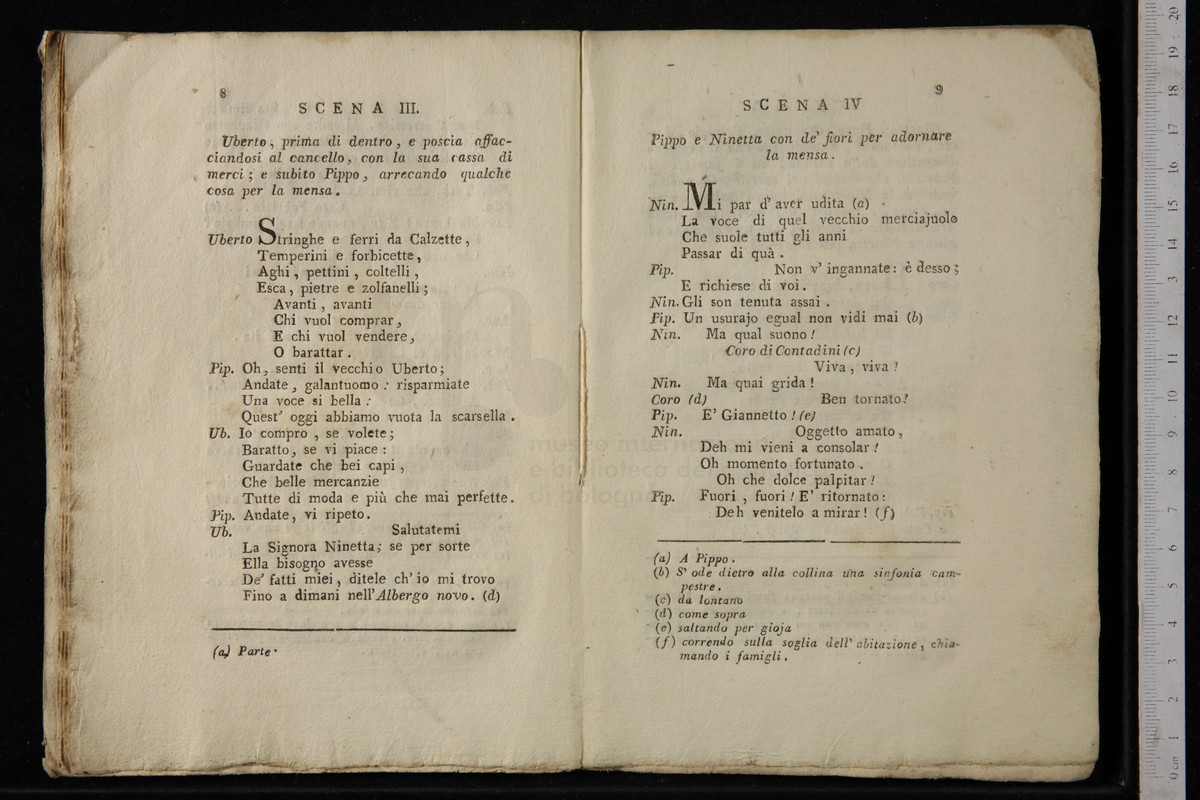 8
SCENA III.
Uberto, prima di dentro, e poscia affac-
ciandosi al cancello, con la sua cassa di
merci; e subito Pippo, arrecando qualche
cosa per la mensa.
Uberto Stringhe e ferri da Calzette,
Temperini e forbicette,
Aghi, pettini, coltelli,
Esca, pietre e zolfanelli;
Avanti, avanti
Chi vuol comprar,
E chi vuol vendere,
O barattar.
Pip. Oh, senti il vecchio Uberto;
Andate, galantuomo: risparmiate
Una voce si bella:
Quest' oggi abbiamo vuota la scarsella.
Ub. Io compro, se volete;
Baratto, se vi piace:
Guardate che bei capi,
Che belle mercanzie
Tutte di moda e più che mai perfette.
Pip. Andate, vi ripeto.
Ub. Salutatemi
La Signora Ninetta; se per sorte
Ella bisogno avesse
De' fatti miei, ditele ch' io mi trovo
Fino a dimani nell' Albergo novo. (d)
(a) Parte.
9
SCENA IV
Pippo e Ninetta con de' fiori per adornare
la mensa.
Nin. Mi par d' aver udita (a)
La voce di quel vecchio merciajuolo
Che suole tutti gli anni
Passar di quà.
Pip. Non v' ingannate: è desso;
E richiese di voi.
Nin. Gli son tenuta assai.
Pip. Un usurajo egual non vidi mai (b)
Nin. Ma qual suono!
Coro di Contadini (c)
Viva, viva!
Nin. Ma quai grida!
Coro (d) Ben tornato!
Pip. E' Giannetto! (e)
Nin. Oggetto amato,
Deh mi vieni a consolar!
Oh momento fortunato.
Oh che dolce palpitar!
Pip. Fuori, fuori! E' ritornato:
Deh venitelo a mirar! (f)
(a) A Pippo.
(b) S' ode dietro alla collina una sinfonia cam-
pestre.
(c) da lontano
(d) come sopra
(e) saltando per gioja
(f) correndo sulla soglia dell' abitazione, chia-
mando i famigli.
museo interna
e biblioteca de
di bologna
0 cm 1 2 3 4 5 6 7 8 9 10 11 12 13 14 15 16 17 18 19 20